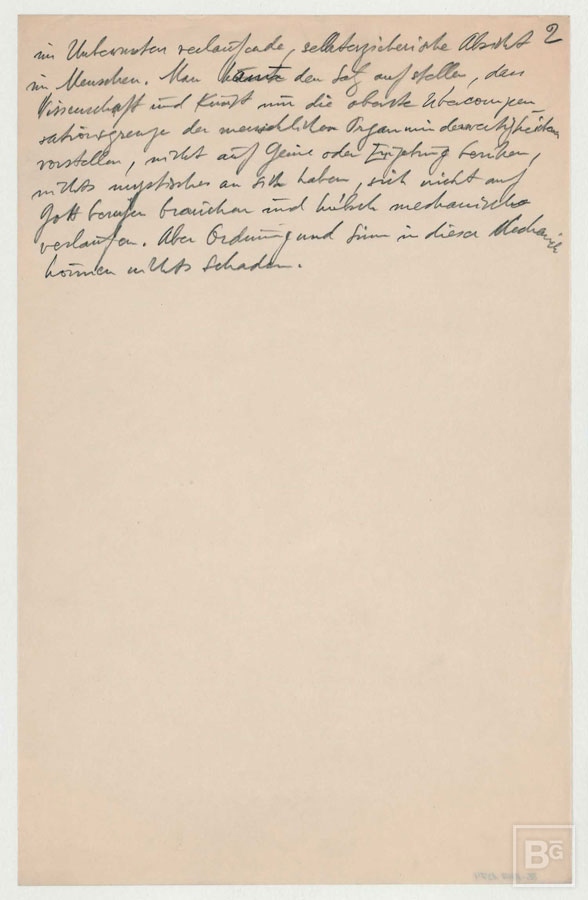 2
im Unbewussten verlaufende, selbsterzieherische Absicht
im Menschen. Man könnte den Satz aufstellen, dass
Wissenschaft und Kunst nur die oberste Übercompen-
sationsgrenze der menschlichen Organminderwertigkeiten
vorstellen, nicht auf Genie oder Erziehung beruhen,
nichts mystisches an sich haben, sich nicht auf
Gott berufen brauchen und hübsch mechanische
verlaufen. Aber Ordnung und Sinn in dieser Mechanik
können nichts schaden.
BG